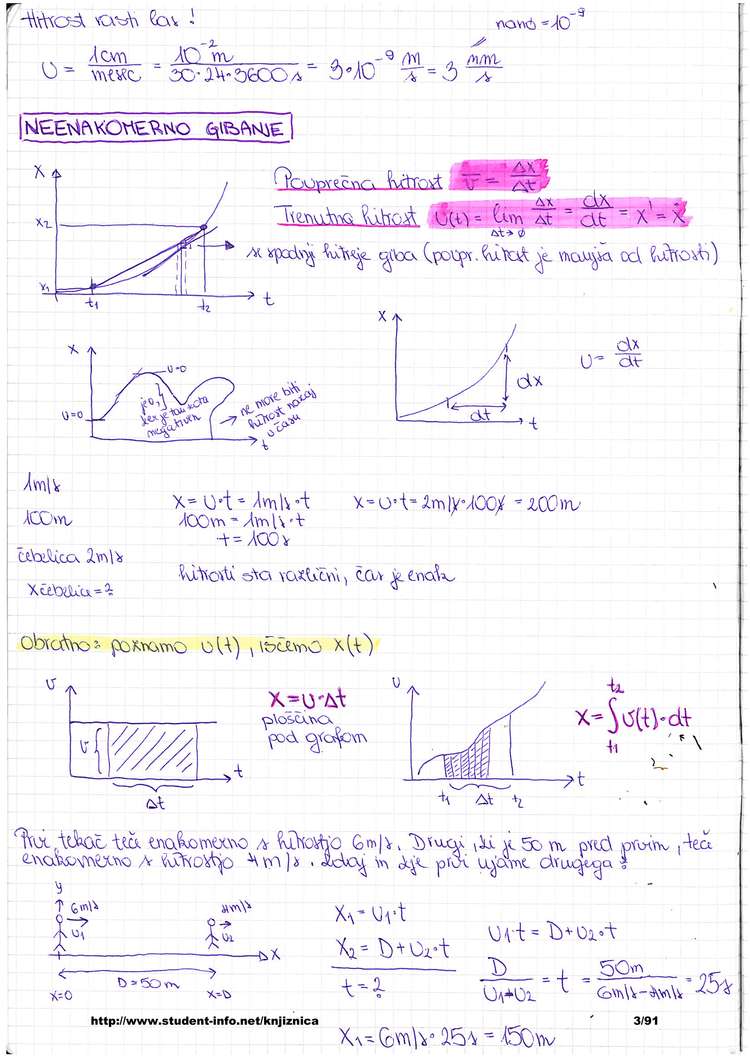 Hitrost rasti las!
nano = 10⁻⁹
v = 1cm/mesec = 10⁻²m/30·24·3600s = 3·10⁻⁹ m/s = 3 nm/s
NEENAKOMERNO GIBANJE
Povprečna hitrost v̄ = Δx/Δt
Trenutna hitrost v(t) = lim Δt→0 Δx/Δt = dx/dt = x' = ẋ
x
x2
x1
t1
t2
t
se spodnji hitreje giba (povpr. hitrost je manjša od hitrosti)
x
v=0
v=0
negativen
t
ne more biti
hitrost nazaj
v času
x
dx
dt
t
v = dx/dt
1m/s
100m
čebelica 2m/s
x čebelice = ?
x = v·t = 1m/s·t
100m = 1m/s·t
t = 100s
x = v·t = 2m/s·100s = 200m
hitrosti sta različni, čas je enak
Obratno: poznamo v(t), iščemo x(t)
v
v
t
Δt
x = v·Δt
ploščina
pod grafom
v
t1
Δt
t2
t
x = ∫ t1 t2 v(t)·dt
Prvi tekač teče enakomerno s hitrostjo 6m/s. Drugi, ki je 50 m pred prvim, teče
enakomerno s hitrostjo 4m/s. Kdaj in kje prvi ujame drugega?
y
6m/s
v1
4m/s
v2
x
D = 50m
x=0
x=D
x1 = v1·t
x2 = D + v2·t
t = ?
v1·t = D + v2·t
D/v1-v2 = t = 50m/6m/s-4m/s = 25s
x1 = 6m/s·25s = 150m
http://www.student-info.net/knjiznica
3/91